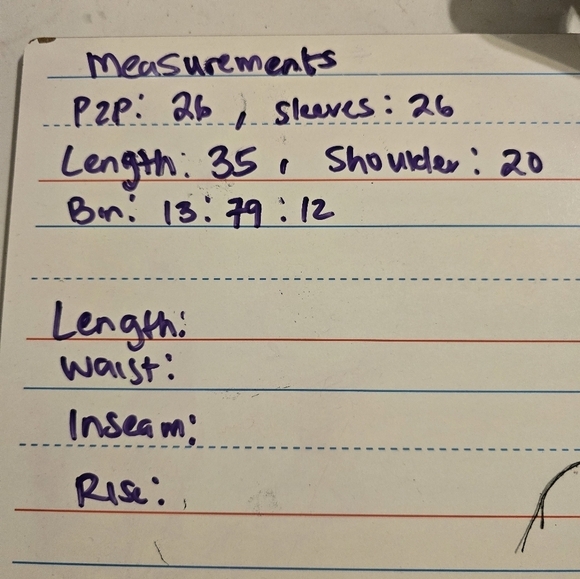 Measurements
P2P: 26, Sleeves: 26
Length: 35, Shoulder: 20
Bin: 13:79:12
Length:
Waist:
Inseam:
Rise: